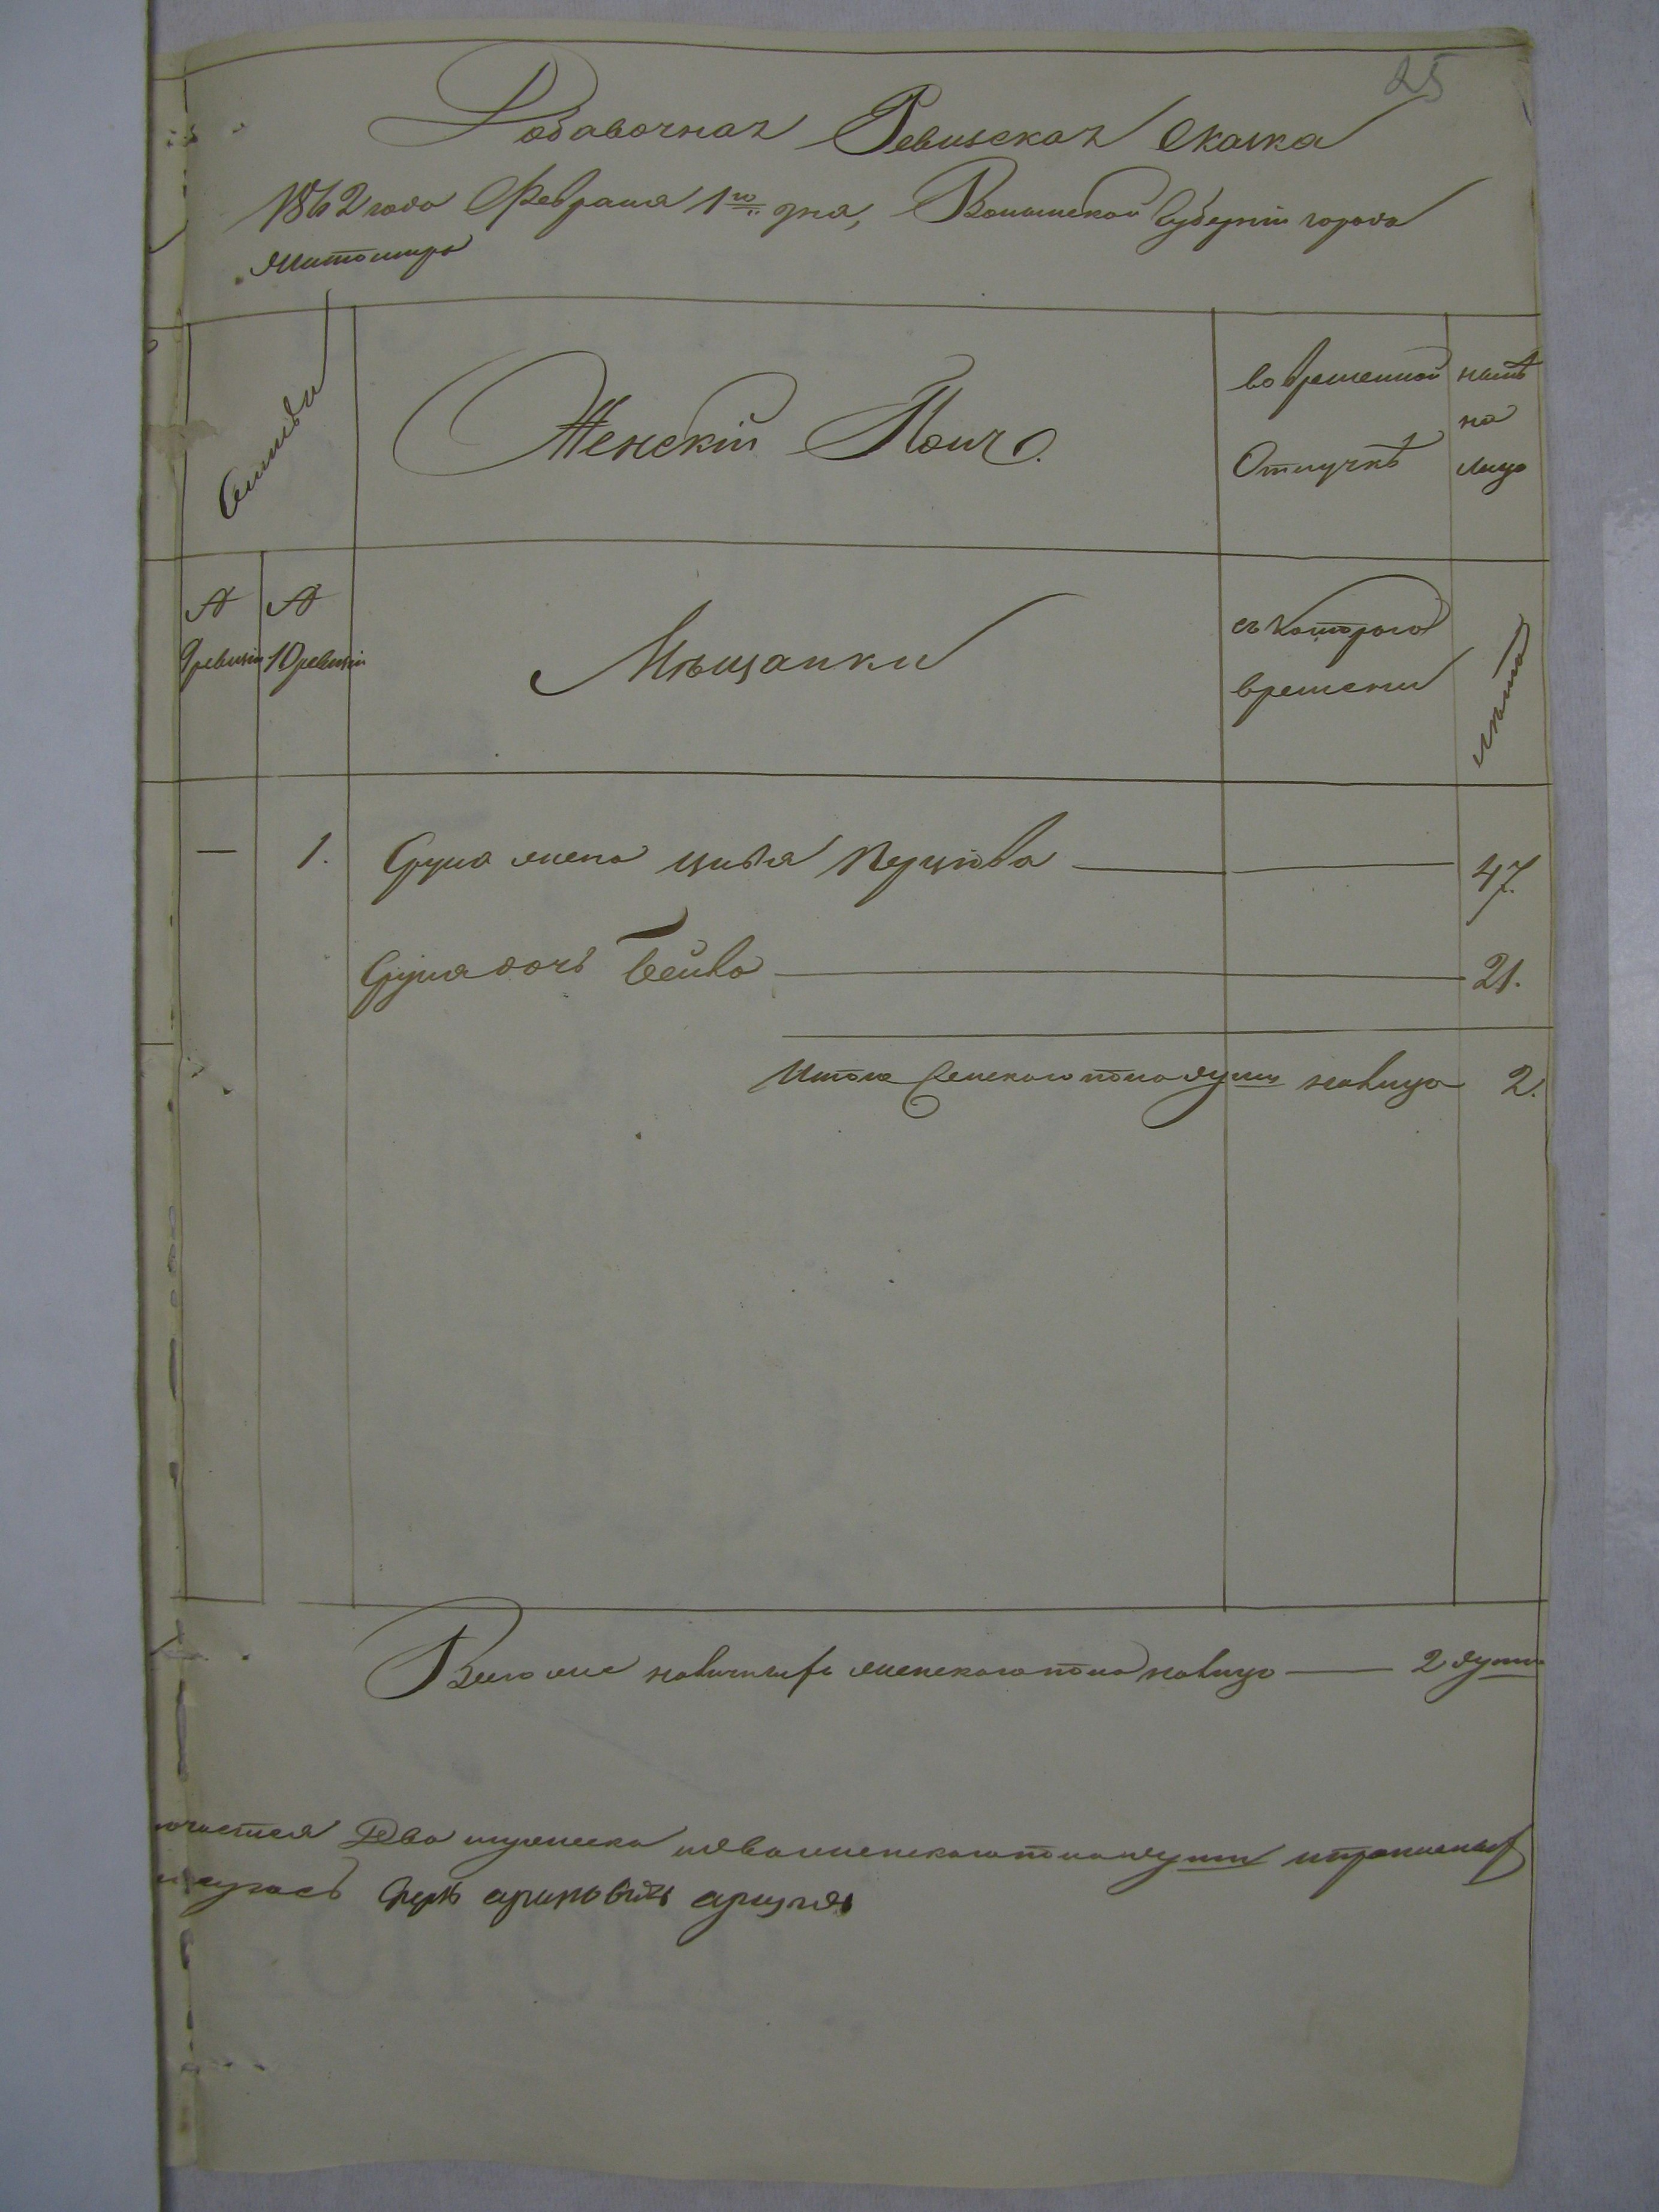 25
Добавочная Ревизская Сказка
1862 года Февраля 1го дня, Волынской Губерніи города
Житомира
Семьи
Женскій Полъ.
во временной
Отлучкѣ
нынѣ
на
лицо
№
9 ревизіи
№
10 ревизіи
Мѣщанки
съ котораго
времени
лѣта
— 1. жена Цивя 47.
дочь Бейла 21.
Итого женскаго пола душъ налицо 2.
Всего же наличныхъ женскаго пола налицо — 2 души
Два мужеска и два женскаго пола душъ